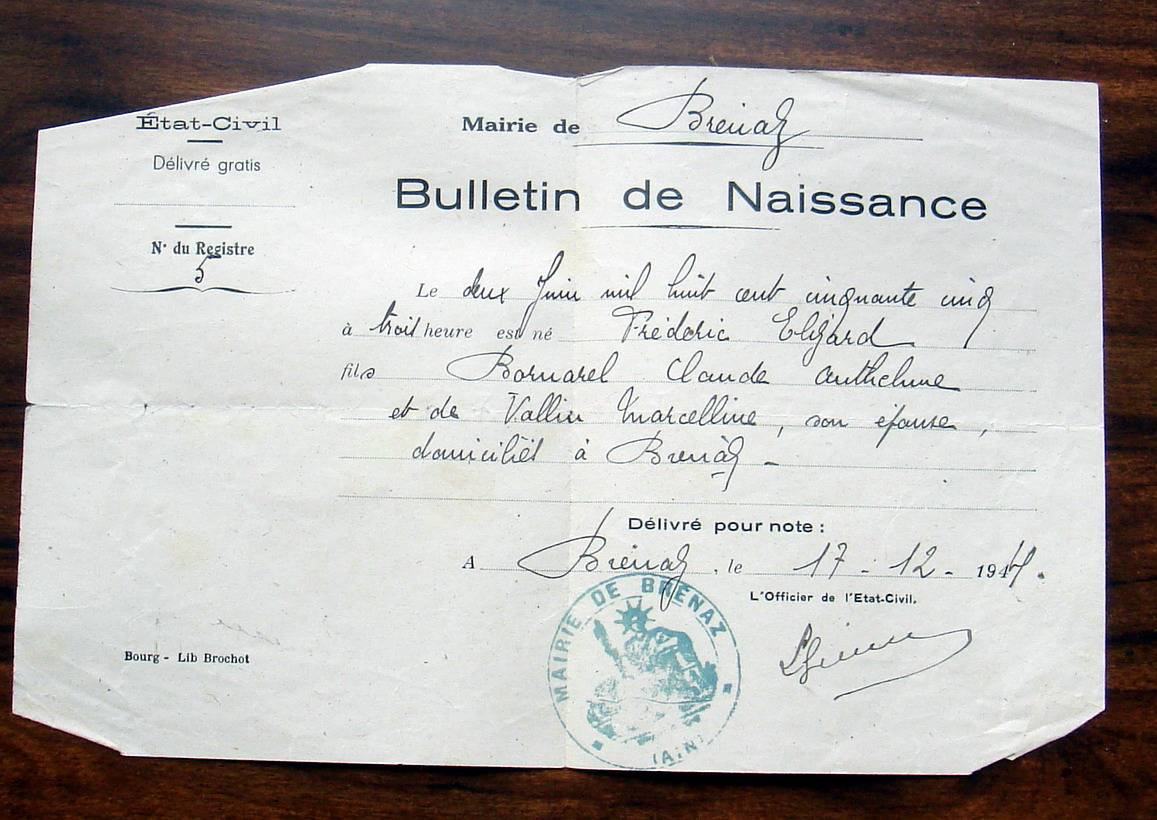 État-Civil
Délivré gratis
N° du Registre
5
Mairie de Brénaz
Bulletin de Naissance
Le deux Juin mil huit cent cinquante cinq
à trois heure est né Frédéric Elgard
fils Bornarel Claude Anthelme
et de Vallin Marcelline, son épouse,
domiciliés à Brénaz -
Délivré pour note :
A Brénaz, le 17 - 12 - 194
L'Officier de l'Etat-Civil.
MAIRIE DE BRÉNAZ
(AIN)
Bourg - Lib Brochot